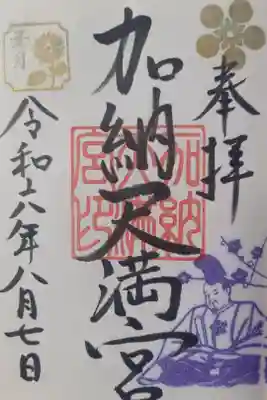 奉拝
加納天満宮
令和六年八月七日
葉月
加納
天満
宮印